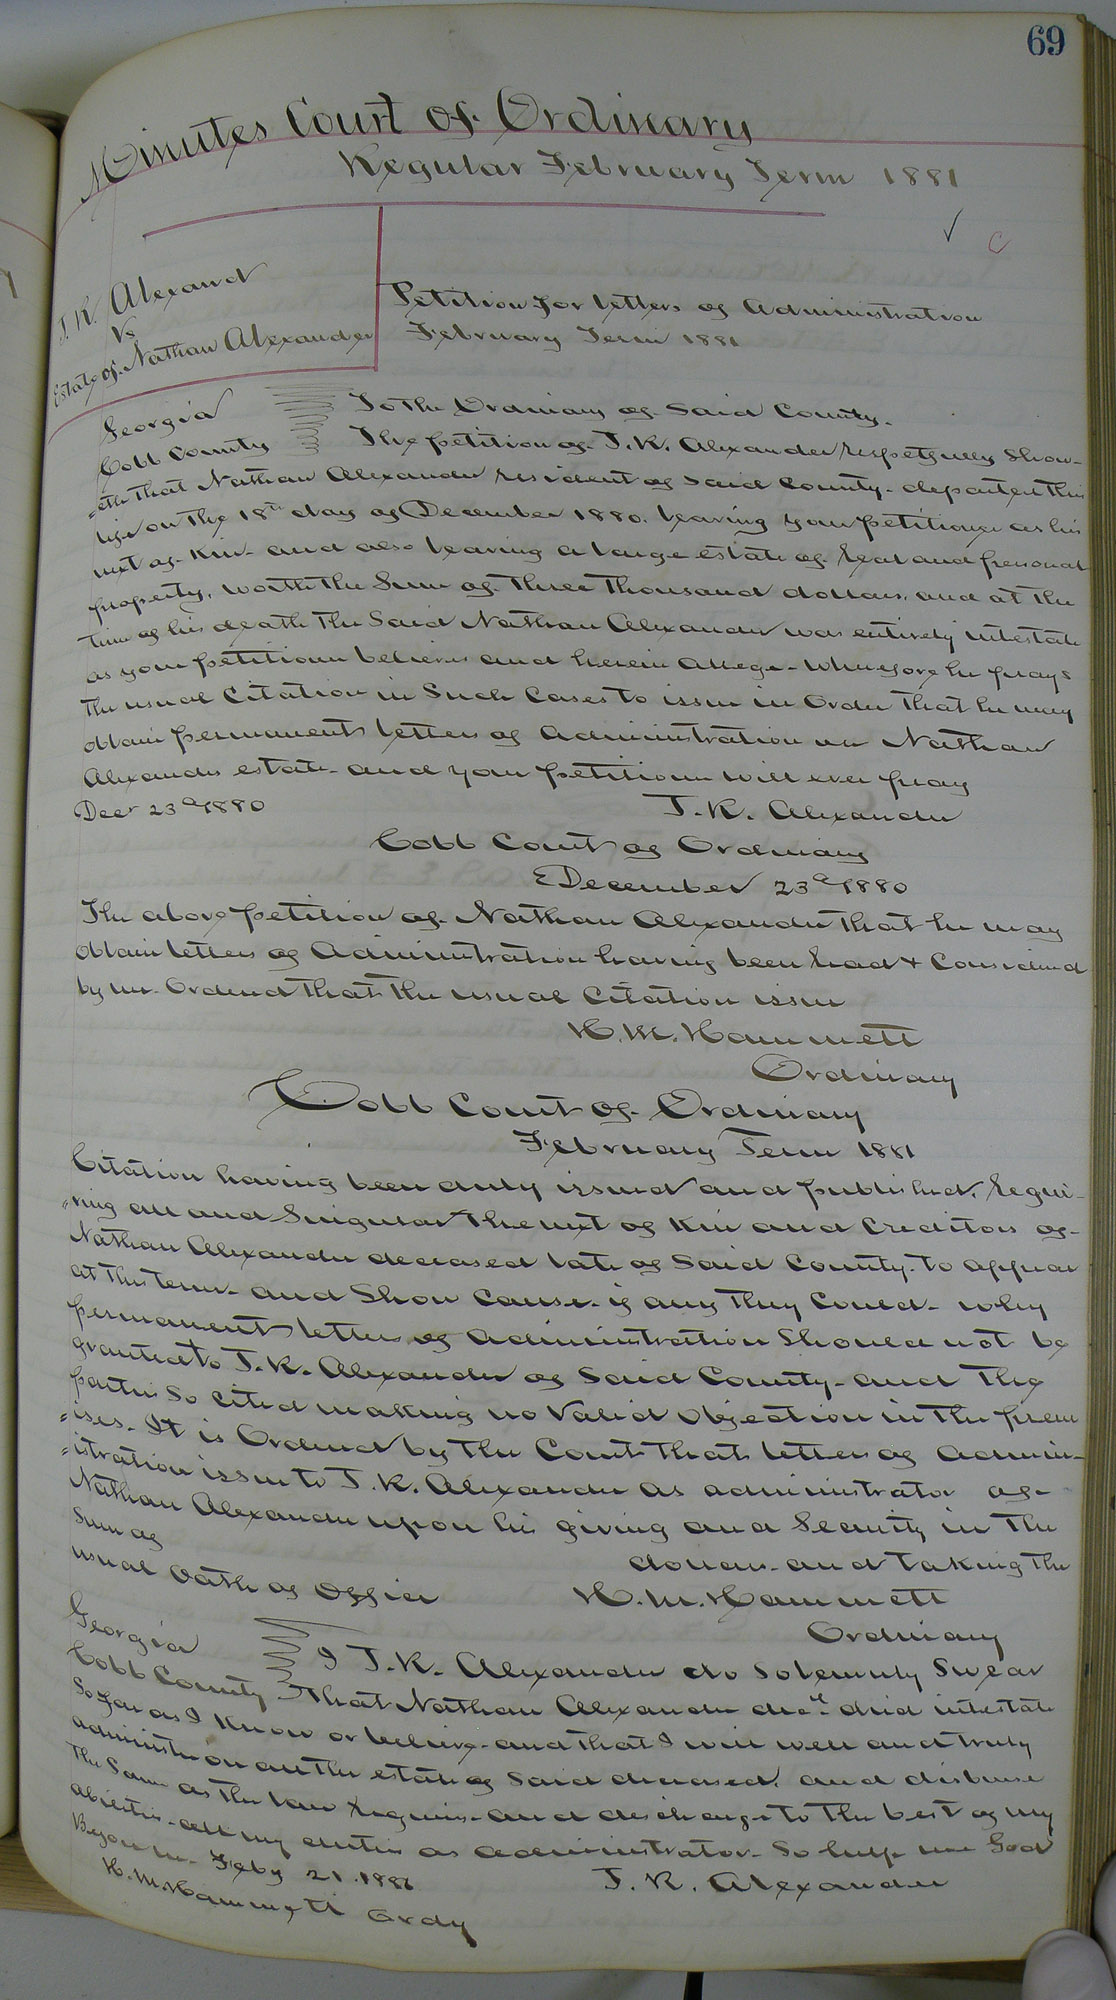 69
Minutes Court of Ordinary
Regular February Term 1881
✓ C
J. R. Alexand
vs
Estate of Nathan Alexander
Petition for letters of Administration
February Term 1881
Georgia
Cobb County
To the Ordinary of Said County.
The petition of J. R. Alexander respetfully Show-
=eth that Nathan Alexander resident of Said County departed this
life on the 18th day of December 1880. leaving your petitioner as his
next of Kin and also leaving a large estate of real and personal
property, worth the Sum of three thousand dollars, and at the
time of his death the Said Nathan Alexander was entirely intestate
as your petitioner believes and herein allege. Wherefore he prays
the usual Citation in Such Cases to issue in Order that he may
obtain permanent letters of Administration on Nathan
Alexander estate and your petitioner will ever pray
Decr 23d 1880
J. R. Alexander
Cobb Court of Ordinary
December 23d 1880
The above petition of Nathan Alexander that he may
obtain letters of Administration having been read & Considered
by me. Ordered that the usual Citation issue
H. M. Hammett
Ordinary
Cobb Court of Ordinary
February Term 1881
Citation having been duly issued and published, requi-
=ring all and Singular the next of Kin and Creditors of
Nathan Alexander deceased late of Said County to appear
at this term and Show Cause if any they Could why
permanent letters of Administration Should not be
granted to J. R. Alexander of Said County and the
parties So cited making no Valid Objection in the prem
=ises. It is Ordered by the Court that letters of Admin-
=istration issue to J. R. Alexander as administrator of
Nathan Alexander upon his giving and Security in the
Sum of
dollars and taking the
usual Oath of Office
H. M. Hammett
Ordinary
Georgia
Cobb County
I J. R. Alexander do Solemnly Swear
that Nathan Alexander decd died intestate
So far as I know or believe and that I will well and truly
administer on all the estate of Said deceased, and disburse
the Same as the law requires and discharge to the best of my
abilities all my duties as administrator. So help me God
Before me Feby 21. 1881
J. R. Alexander
H. M. Hammett Ordy